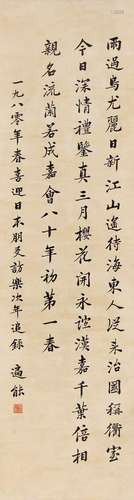 雨過烏尤麗日新江山遙待海東人從来治國稱衡
今日深情禮鑒真三月櫻花開永誼漢嘉千葉倍相
親名流蘭若成嘉會八十年初第一春
一九八〇年春喜迎日本朋友訪樂次年追錄 遍能